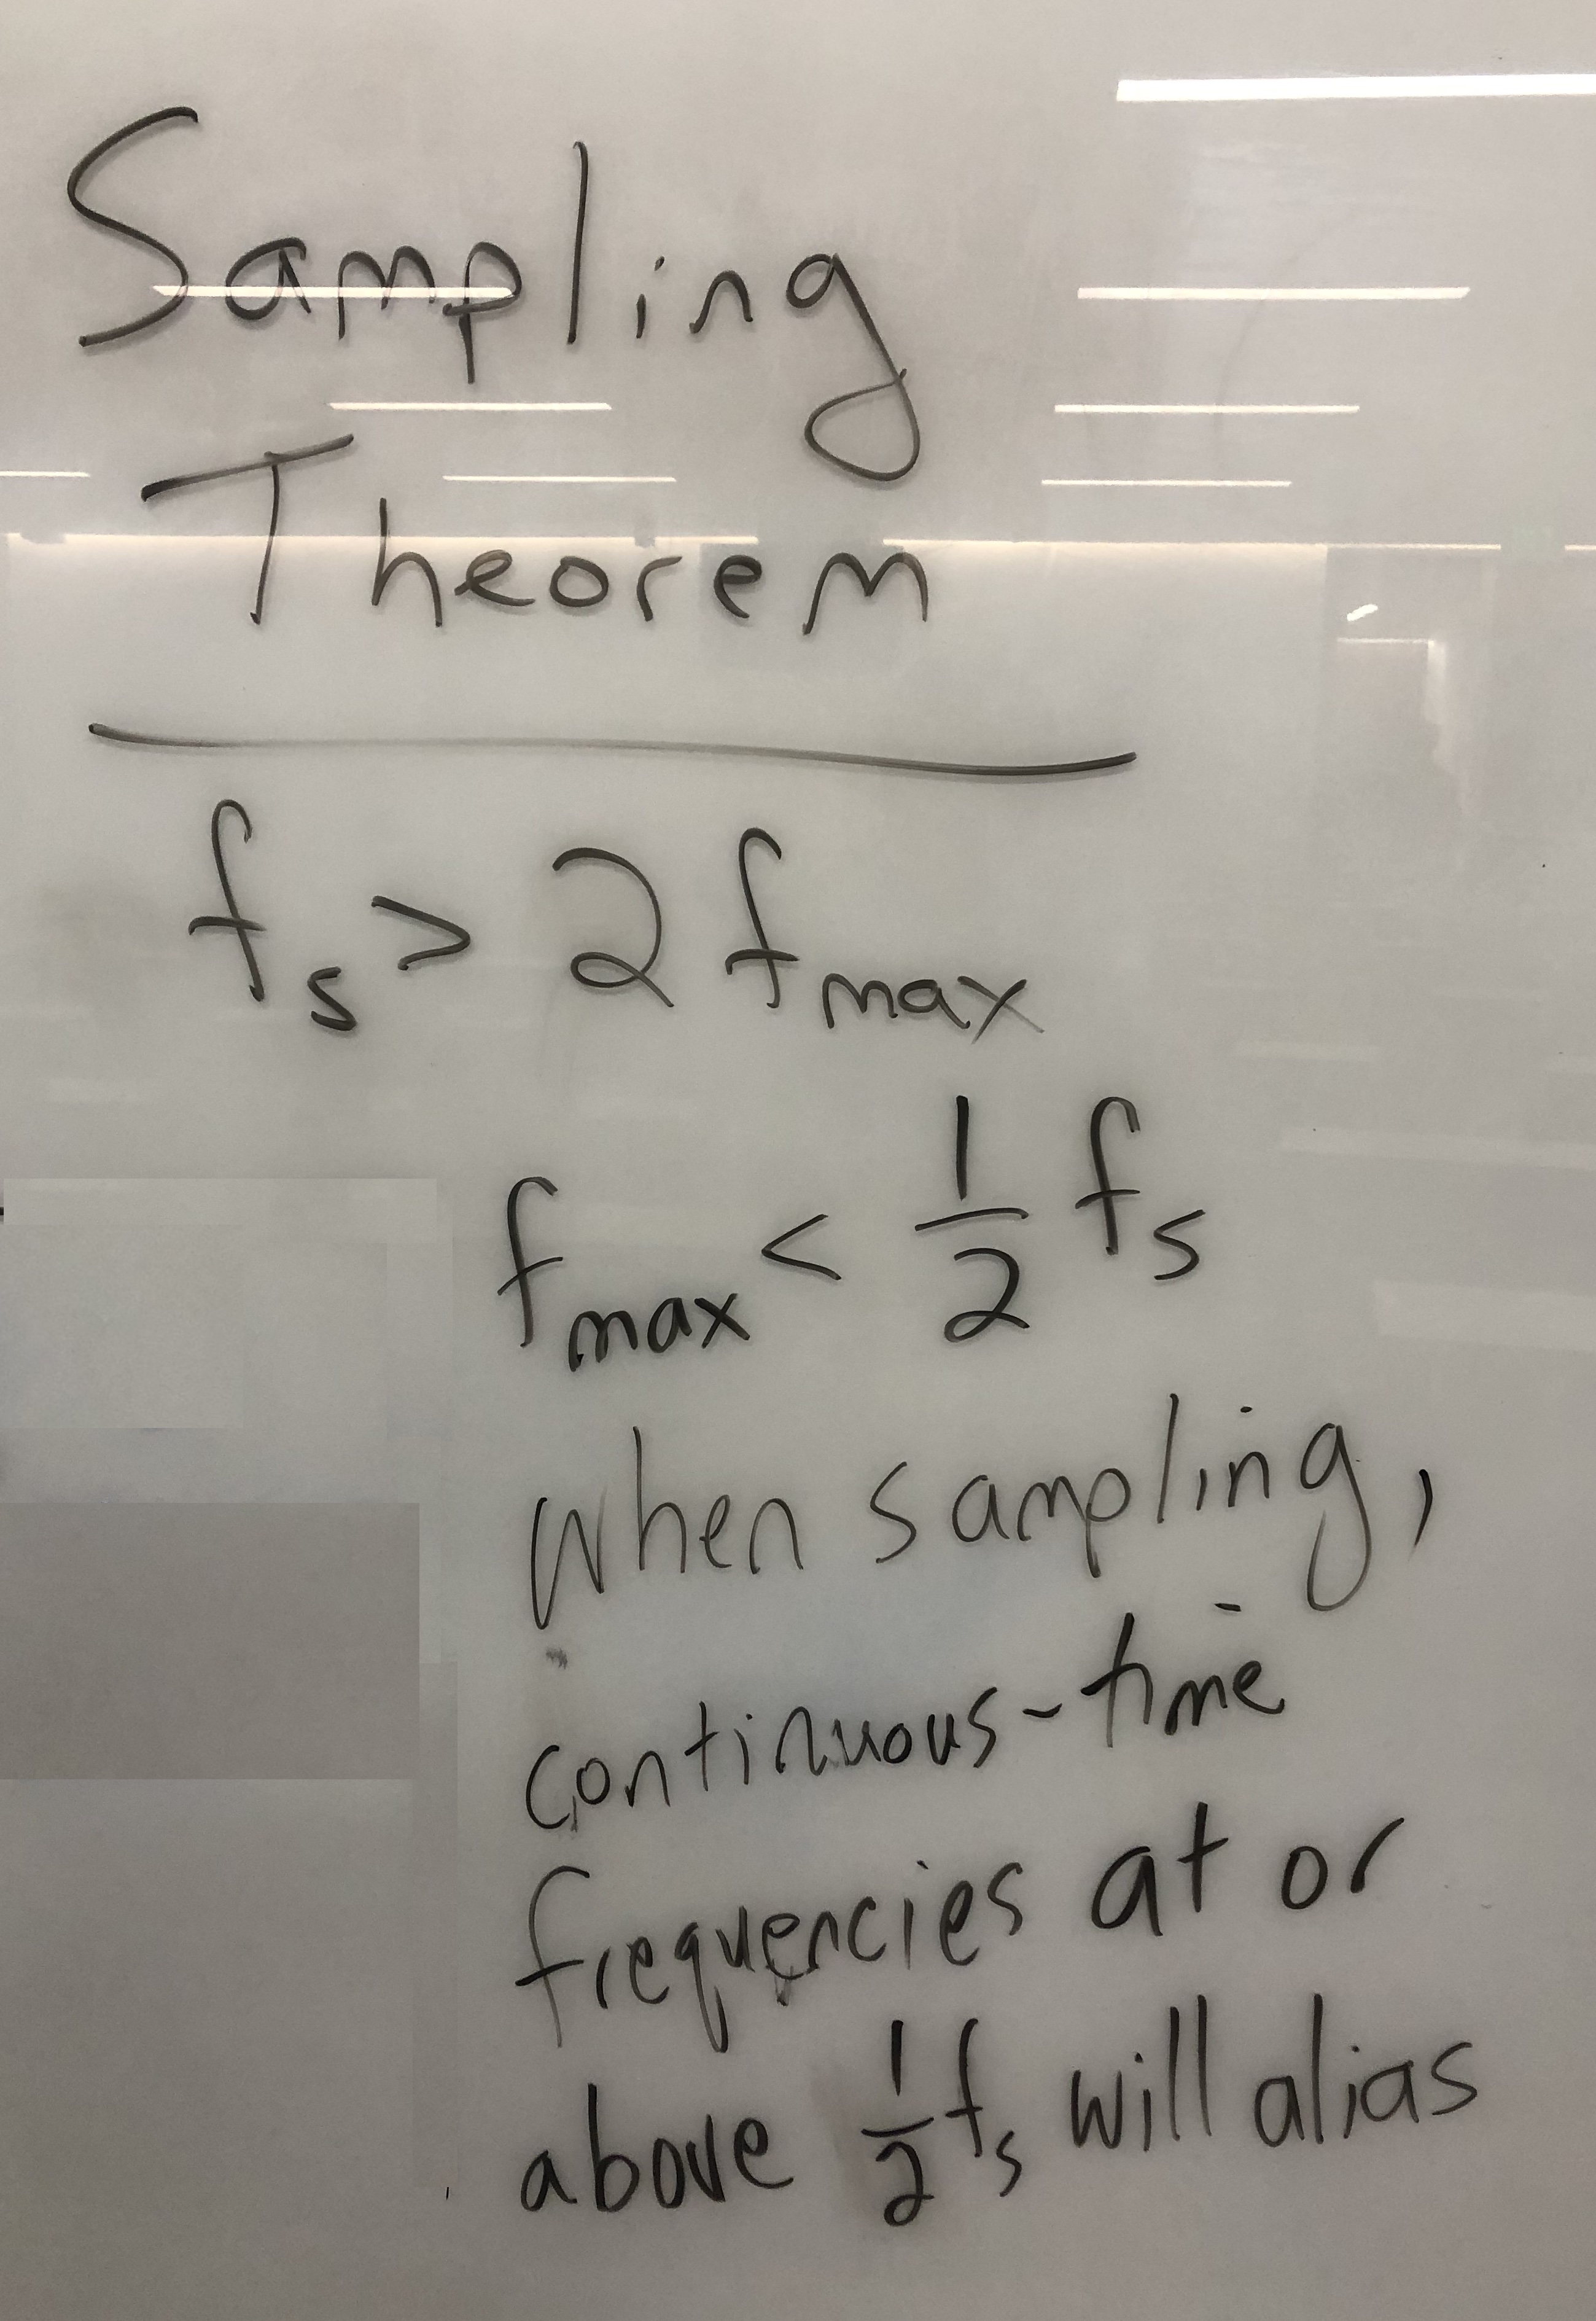 Sampling
Theorem
f_s > 2 f_max
f_max < 1/2 f_s
When sampling,
continuous-time
frequencies at or
above 1/2 f_s will alias